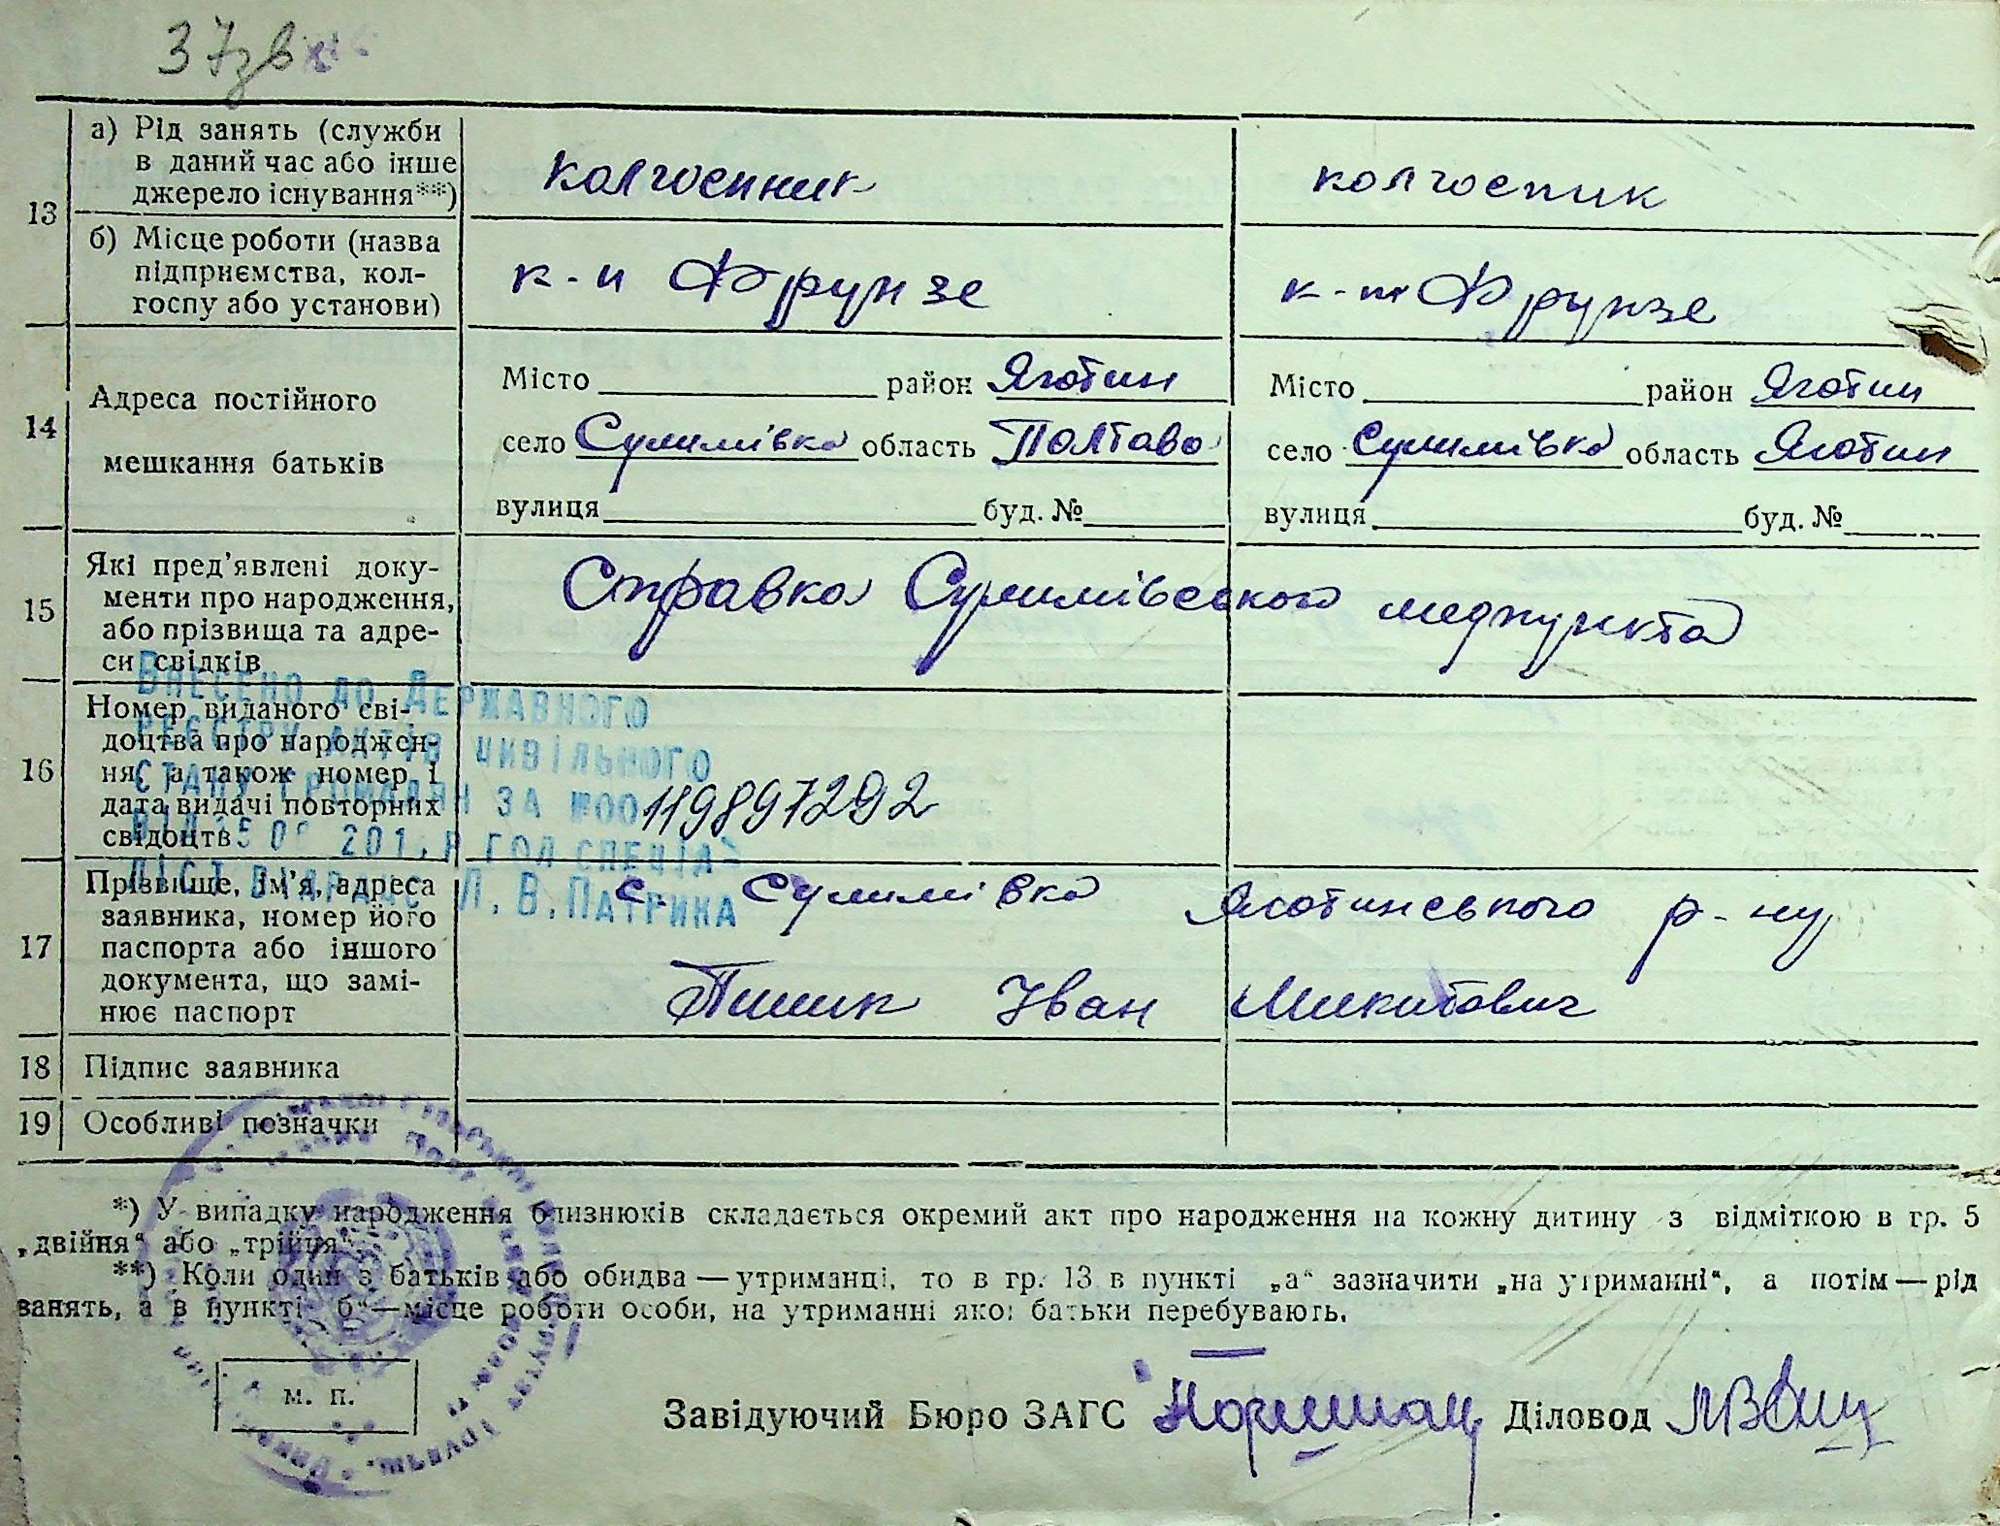 37зв
13 а) Рід занять (служби
в даний час або інше
джерело існування**)
колгоспник колгоспик
б) Місце роботи (назва
підприємства, кол-
госпу або установи)
к-п Фрунзе к-т Фрунзе
14 Адреса постійного
мешкання батьків
Місто район Яготин Місто район Яготин
село Сулимівка область Полтава село Сулимівка область Яготин
вулиця буд. № вулиця буд. №
15 Які пред'явлені доку-
менти про народження,
або прізвища та адре-
си свідків
Справка Сулимівського медпункта
16 Номер виданого сві-
доцтва про народжен-
ня, а також номер і
дата видачі повторних
свідоцтв
Внесено до Державного
реєстру актів цивільного
стану громадян за №00119897292
201 р гол спеціа-
ліст Л.В.Патрика
17 Прізвище, ім'я, адреса
заявника, номер його
паспорта або іншого
документа, що замі-
нює паспорт
с. Сулимівка Яготинського р-ну
Пишик Іван Микитович
18 Підпис заявника
19 Особливі позначки
*) У випадку народження близнюків складається окремий акт про народження на кожну дитину з відміткою в гр. 5
„двійня“ або „трійня“.
**) Коли один з батьків або обидва — утриманці, то в гр. 13 в пункті „а“ зазначити „на утриманні“, а потім — рід
занять, а в пункті „б“—місце роботи особи, на утриманні якої батьки перебувають.
м. п.
Завідуючий Бюро ЗАГС Діловод